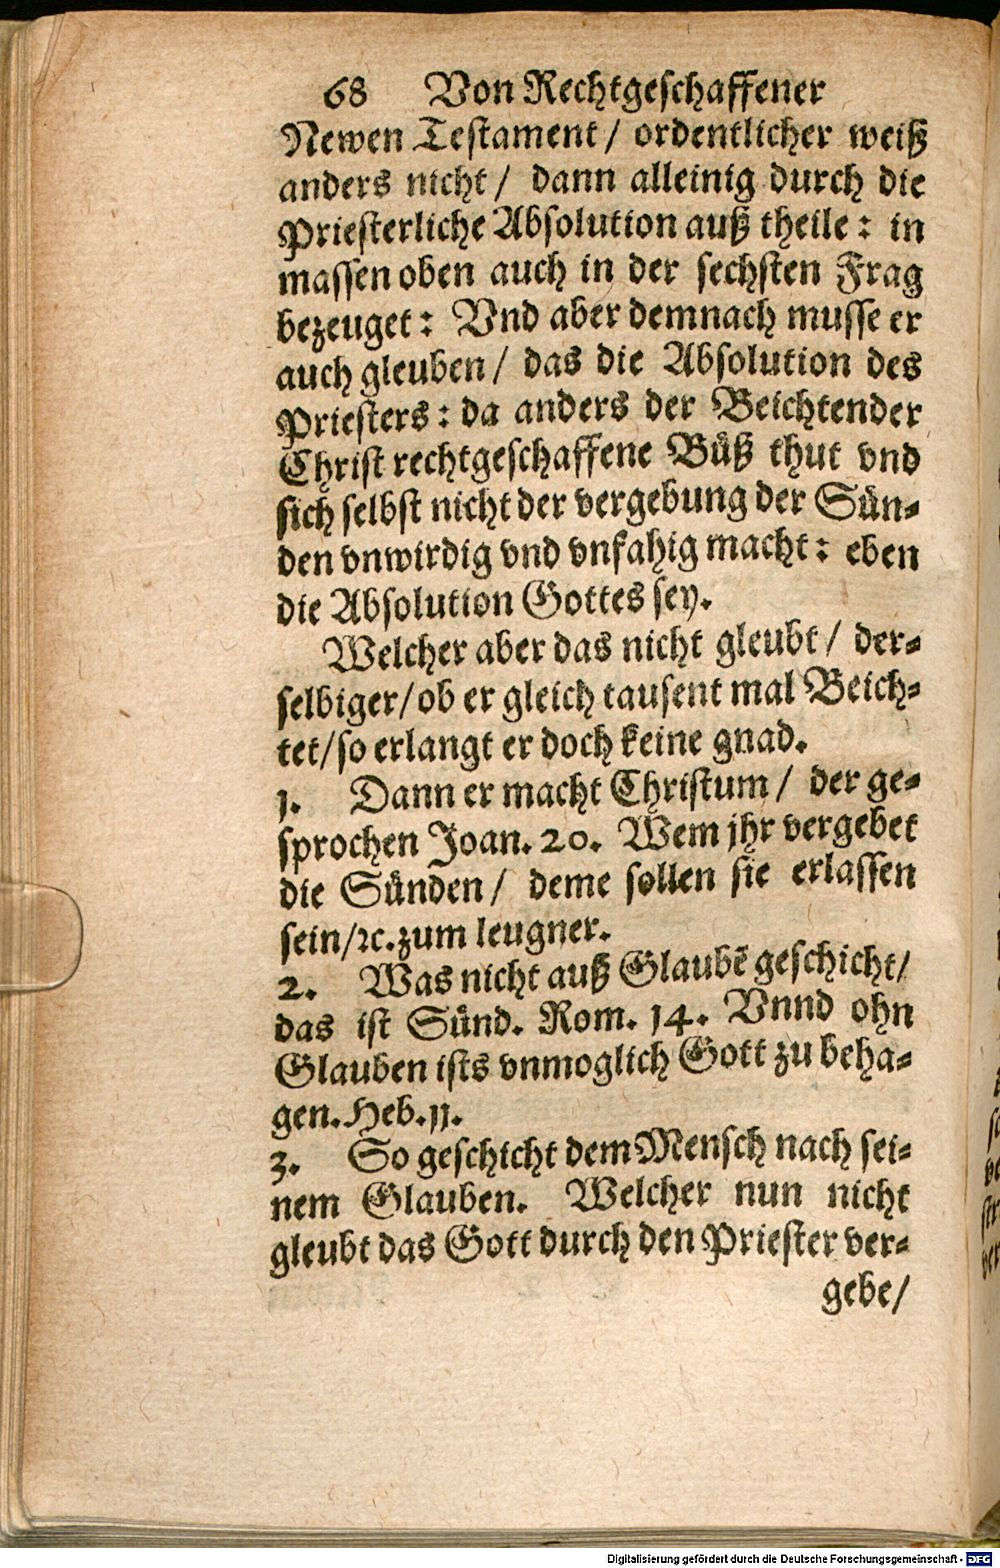 68 Von Rechtgeschaffener
Newen Testament / ordentlicher weiß
anders nicht / dann alleinig durch die
Priesterliche Absolution auß theile: in
massen oben auch in der sechsten Frag
bezeuget: Vnd aber demnach musse er
auch gleuben / das die Absolution des
Priesters: da anders der Beichtender
Christ rechtgeschaffene Bůß thut vnd
sich selbst nicht der vergebung der Sün-
den vnwirdig vnd vnfahig macht: eben
die Absolution Gottes sey.
Welcher aber das nicht gleubt / der-
selbiger/ ob er gleich tausent mal Beich-
tet/ so erlangt er doch keine gnad.
1. Dann er macht Christum / der ge-
sprochen Joan. 20. Wem jhr vergebet
die Sünden / deme sollen sie erlassen
sein/ ꝛc. zum leugner.
2. Was nicht auß Glaubē geschicht/
das ist Sünd. Rom. 14. Vnnd ohn
Glauben ists vnmoglich Gott zu beha-
gen. Heb. 11.
3. So geschicht dem Mensch nach sei-
nem Glauben. Welcher nun nicht
gleubt das Gott durch den Priester ver-
gebe/
Digitalisierung gefördert durch die Deutsche Forschungsgemeinschaft - DFG